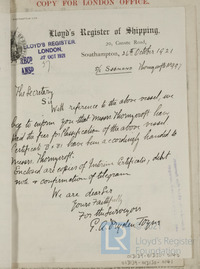 COPY FOR LONDON OFFICE.
Lloyd's Register of Shipping,
Southampton,
1921
LLOYD'S REGISTER
LONDON.
27 OCT 1921
ABCP
ANSP
Thornycroft
The Secretary
Sir
With reference to the above vessel, we
beg to inform you that Messrs Thornycroft having
paid the fees for Classification of the above vessel
Certificates have been accordingly handed to
Messrs Thornycroft.
Enclosed are copies of Interim Certificate, debit
note & confirmation of telegram.
We are dear Sir
Yours Faithfully
For the Surveyors
Lloyd's Register
Foundation